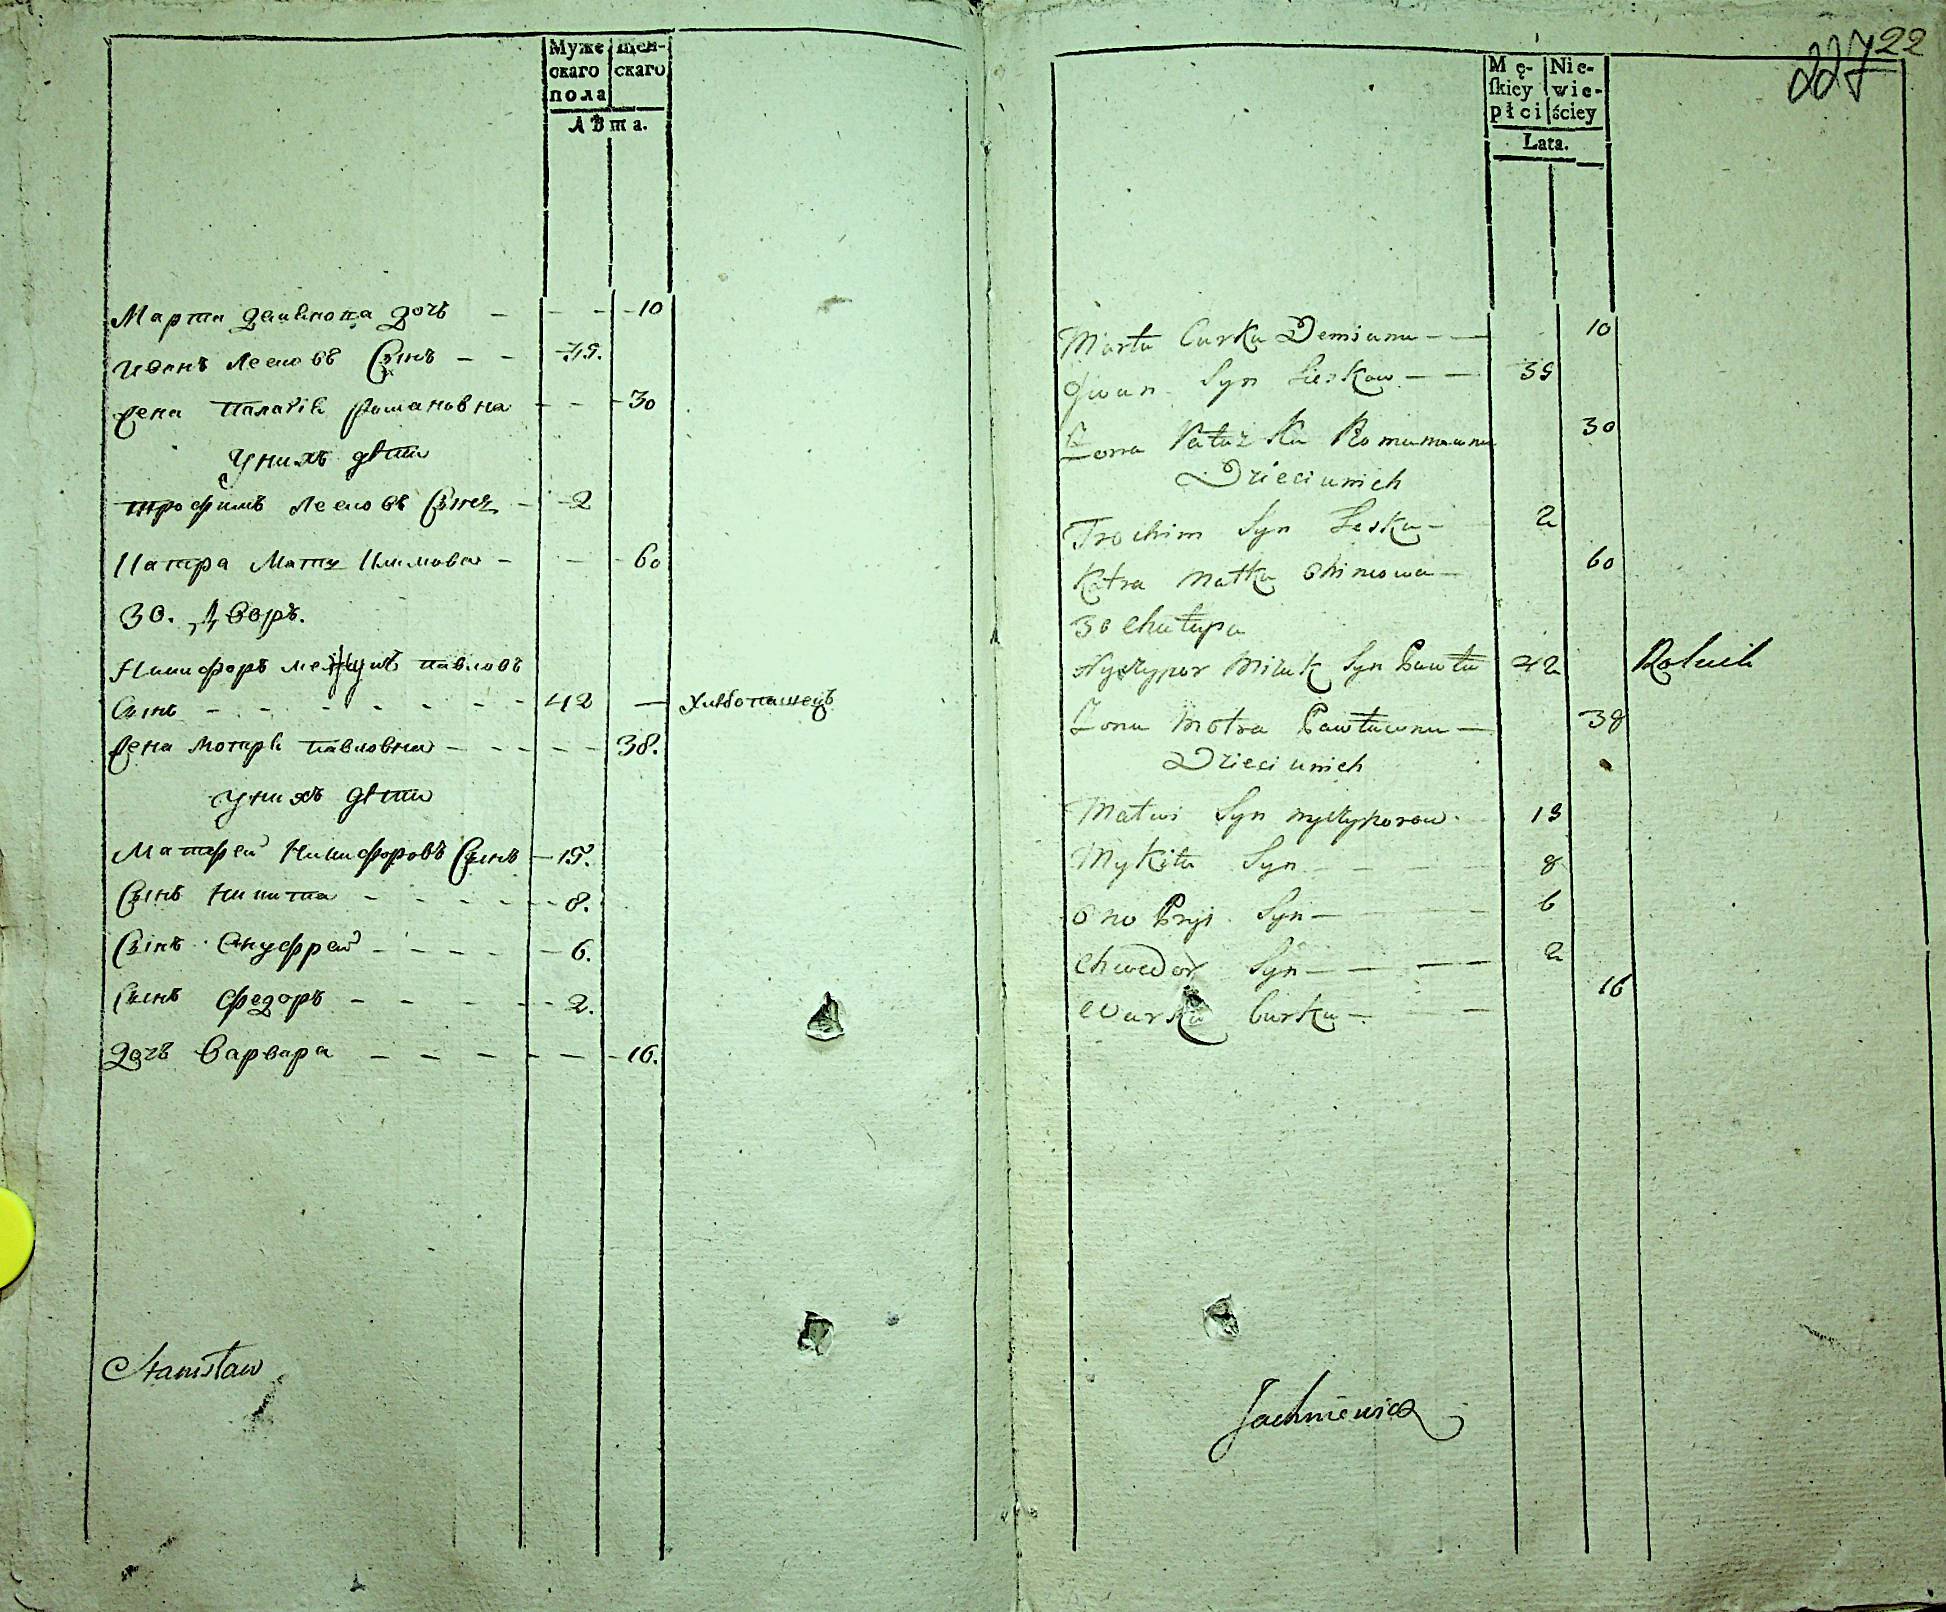 Муже
скаго
пола
жен-
скаго
Лѣта.
Марта Демянова дочь - - - 10
Иванъ Лесковъ Сынъ - - 35.
Жена Палагія Романовна - - 30
У нихъ дѣти
Трофимъ Лесковъ Сынъ - 2
Катра Мать Климова - - 60
30. Дворъ.
Никифоръ павловъ
Сынъ - - - - - - - 42 — хлѣбопашецъ
Жена Мотря павловна - - - - 38.
У нихъ дѣти
Матфей Никифоровъ Сынъ - 15.
Сынъ Никита - - - - 8.
Сынъ Онуфрей - - - - 6.
Сынъ Федоръ - - - - 2.
Дочь Варвара - - - - - 16.
Stanisław
227 22
Mę-
ſkiey
płci
Nie-
wie-
ściey
Lata.
Marta Curka Demiana — 10
Jwan Syn Leskow — — 35
Żona Romanowna 30
Dzieci u nich
Trochim Syn Leska — 2
Katra Matka — 60
30 Chałupa
Nyczypor Miluk Syn Pawła 42 Rolnik
Żona Motra Pawłowna — 38
Dzieci u nich
Matwi Syn nyczyporow - 13
Mykita Syn - - - 8
Onopryi Syn — - - 6
Chwedor Syn — — — 2
Warka Curka — — 16
Jachniewicz